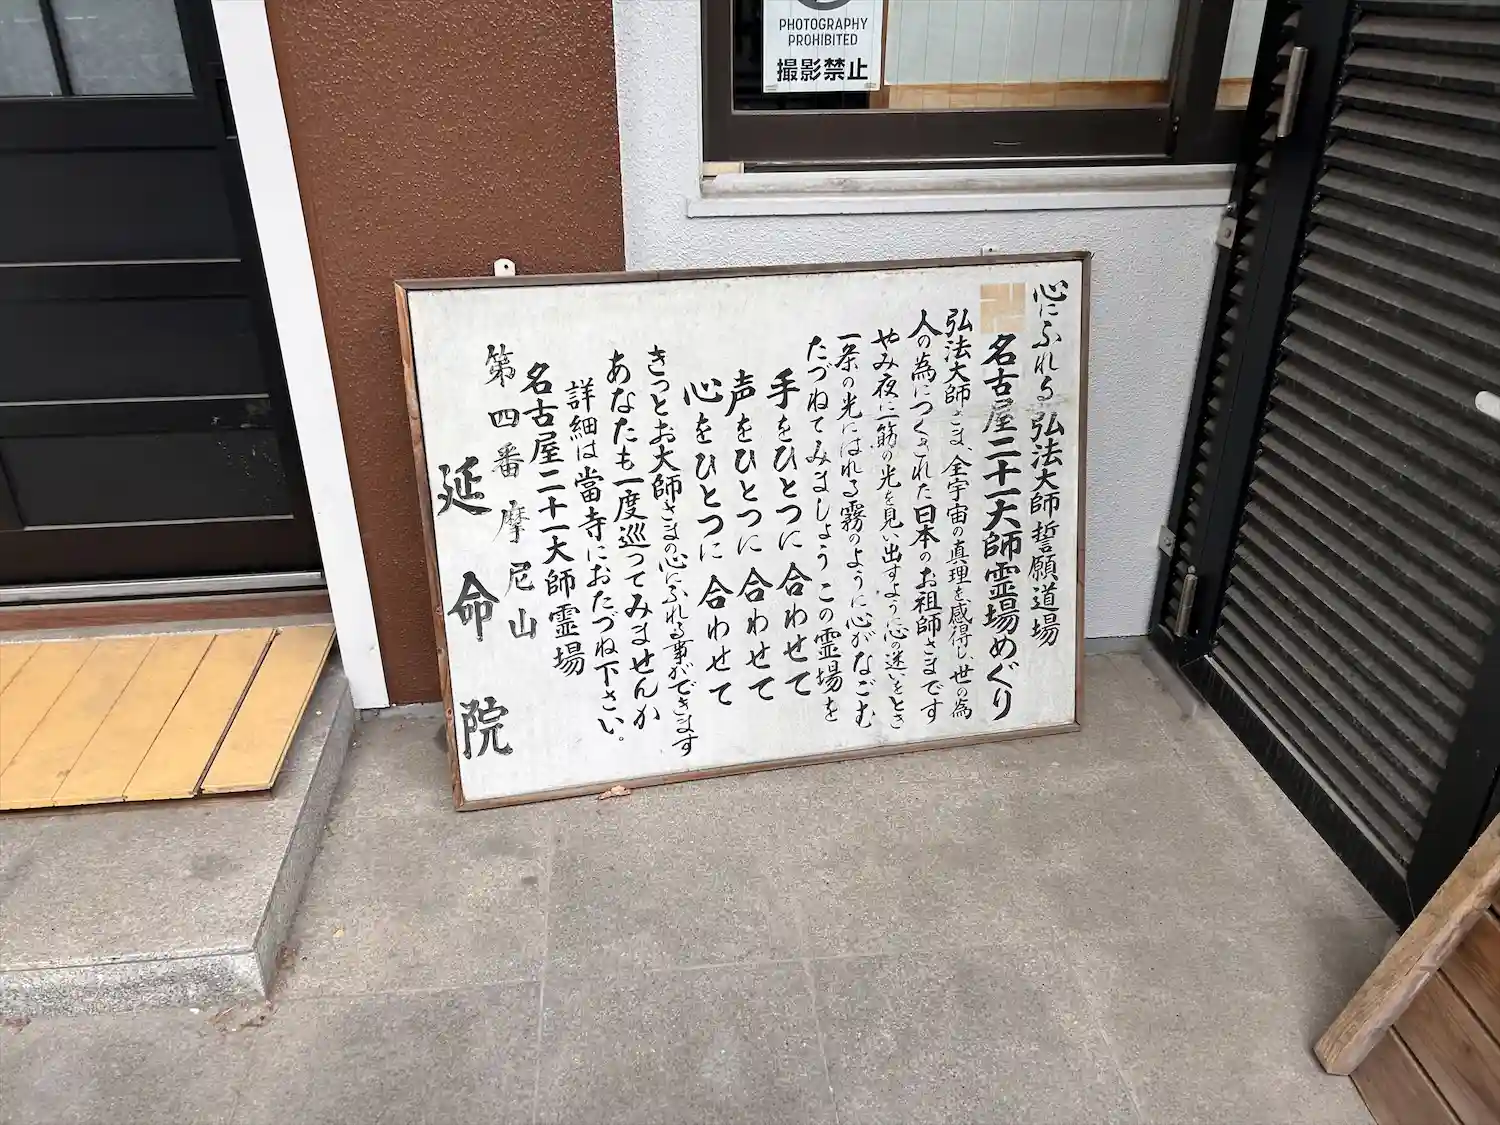 PHOTOGRAPHY
PROHIBITED
撮影禁止
心にふれる弘法大師誓願道場
名古屋二十一大師霊場めぐり
弘法大師さま、全宇宙の真理を感得し、世の為
人の為につくされた日本のお祖師さまです
やみ夜に一筋の光を見い出すように心の迷いをとき
一条の光にはれる霧のように心がなごむ
たづねてみましょうこの霊場を
手をひとつに合わせて
声をひとつに合わせて
心をひとつに合わせて
きっとお大師さまの心にふれる事ができます
あなたも一度巡ってみませんか
詳細は當寺におたづね下さい。
名古屋二十一大師霊場
第四番摩尼山
延命院